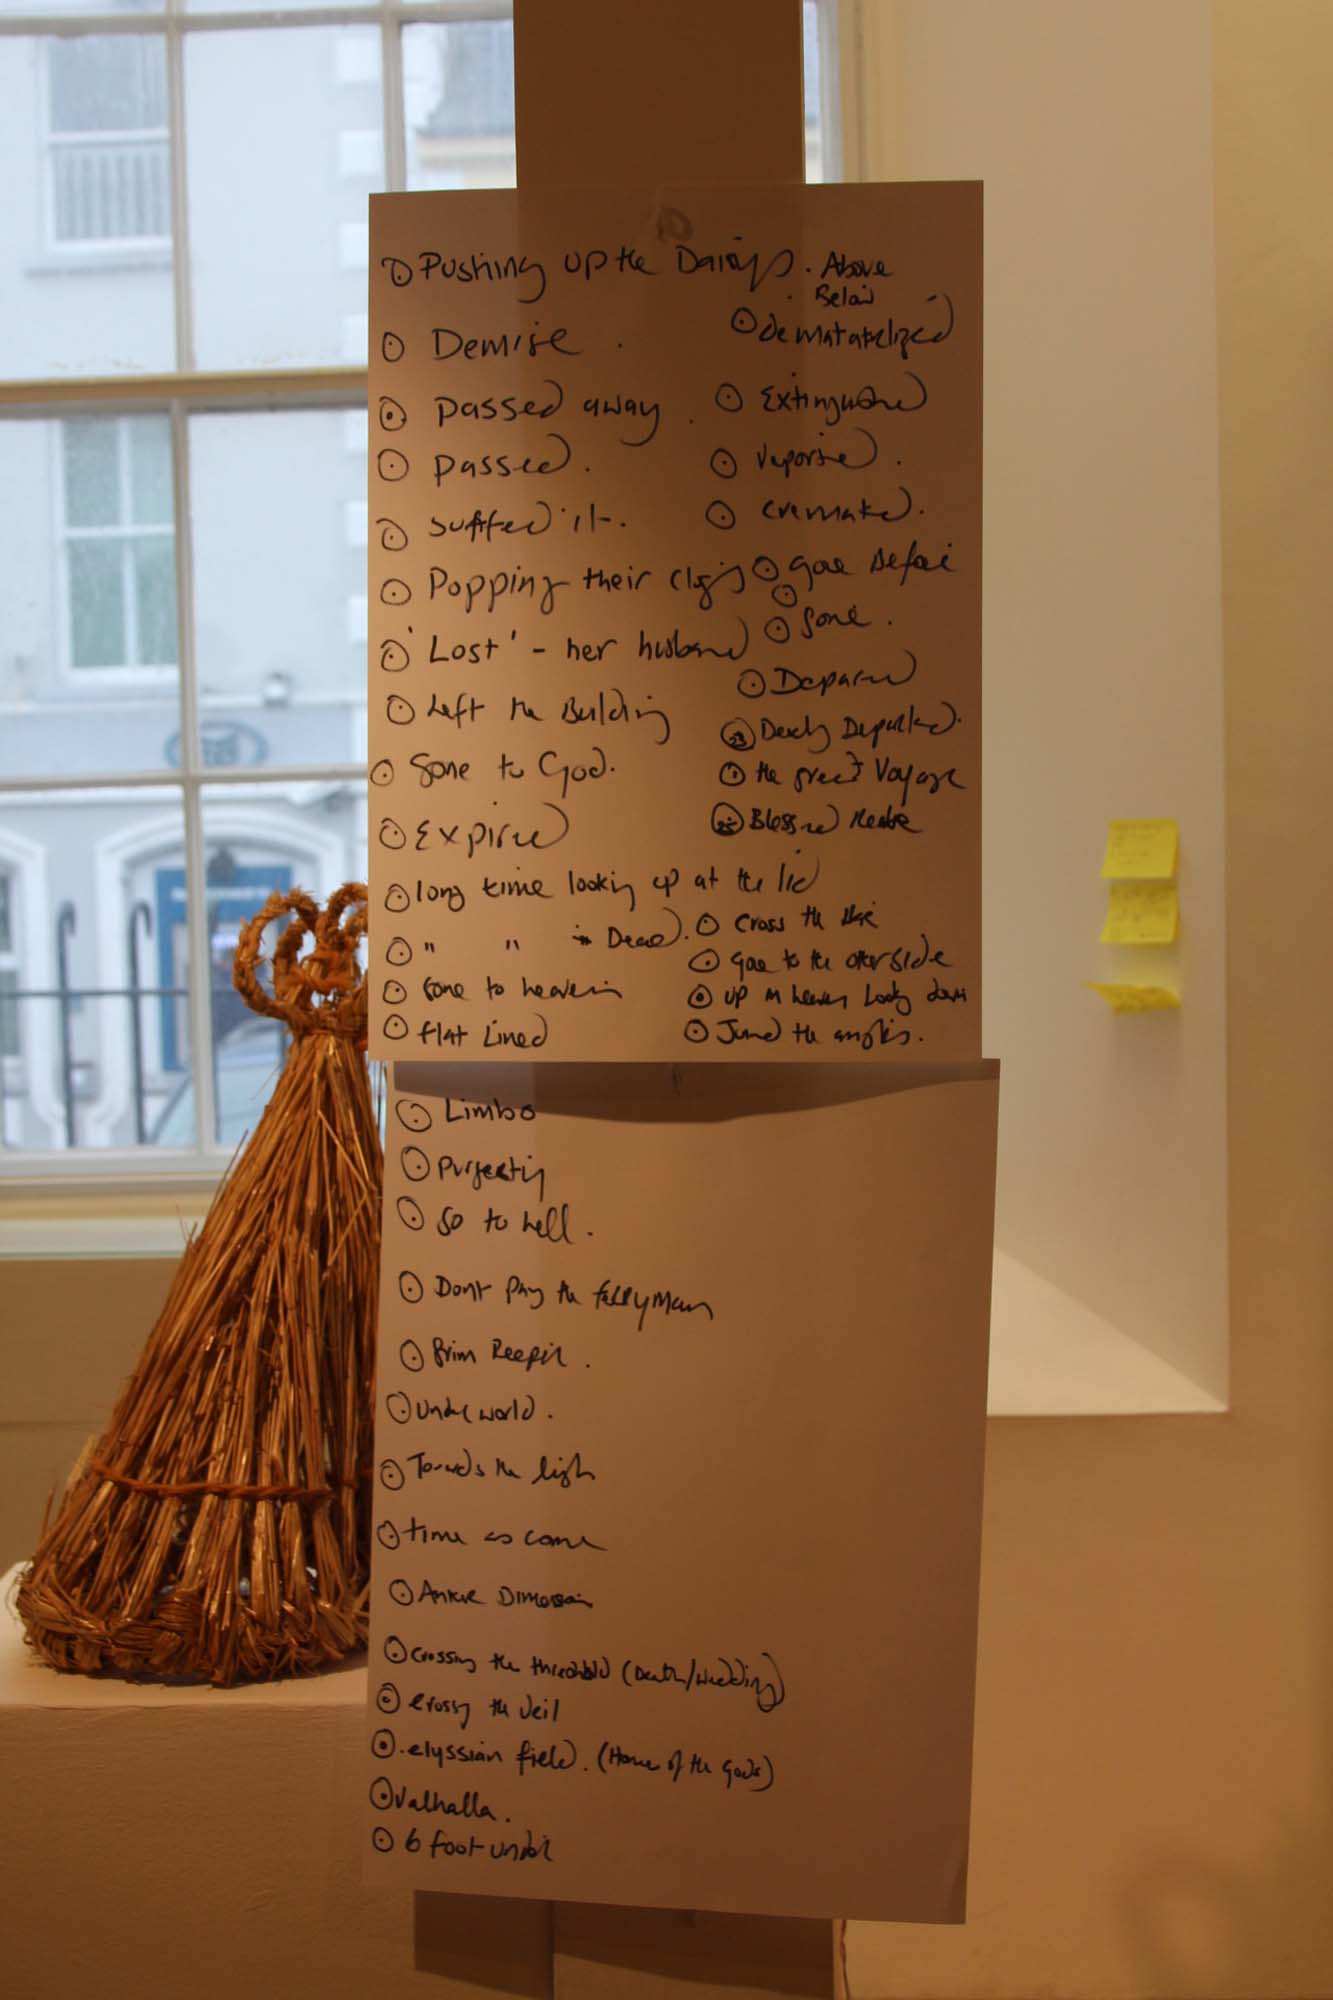 Pushing up the Daisys . Above
. Below
Demise .
dematarelized
passed away .
Extinguished
passed .
Vaporised .
suffed it .
cremated .
Popping their clogs
gone before
'Lost' - her husband
gone .
Left the Building
Departed
Dearly Departed .
Gone to God .
the great Voyage
Expired
Blessed Release
long time looking up at the lid
" " Dead .
Cross the
gone to the otherside
Gone to heaven
up in heaven looking down
flat Lined
Joined the angles .
Limbo
Purgectry
Go to hell .
Dont pay the ferryman
Grim Reeper .
Underworld .
Towards the light
time as come
Dimension
Crossing the threshold (Death/wedding)
Crossing the veil
. elyssian field . (Home of the Gods)
Valhalla .
6 foot under